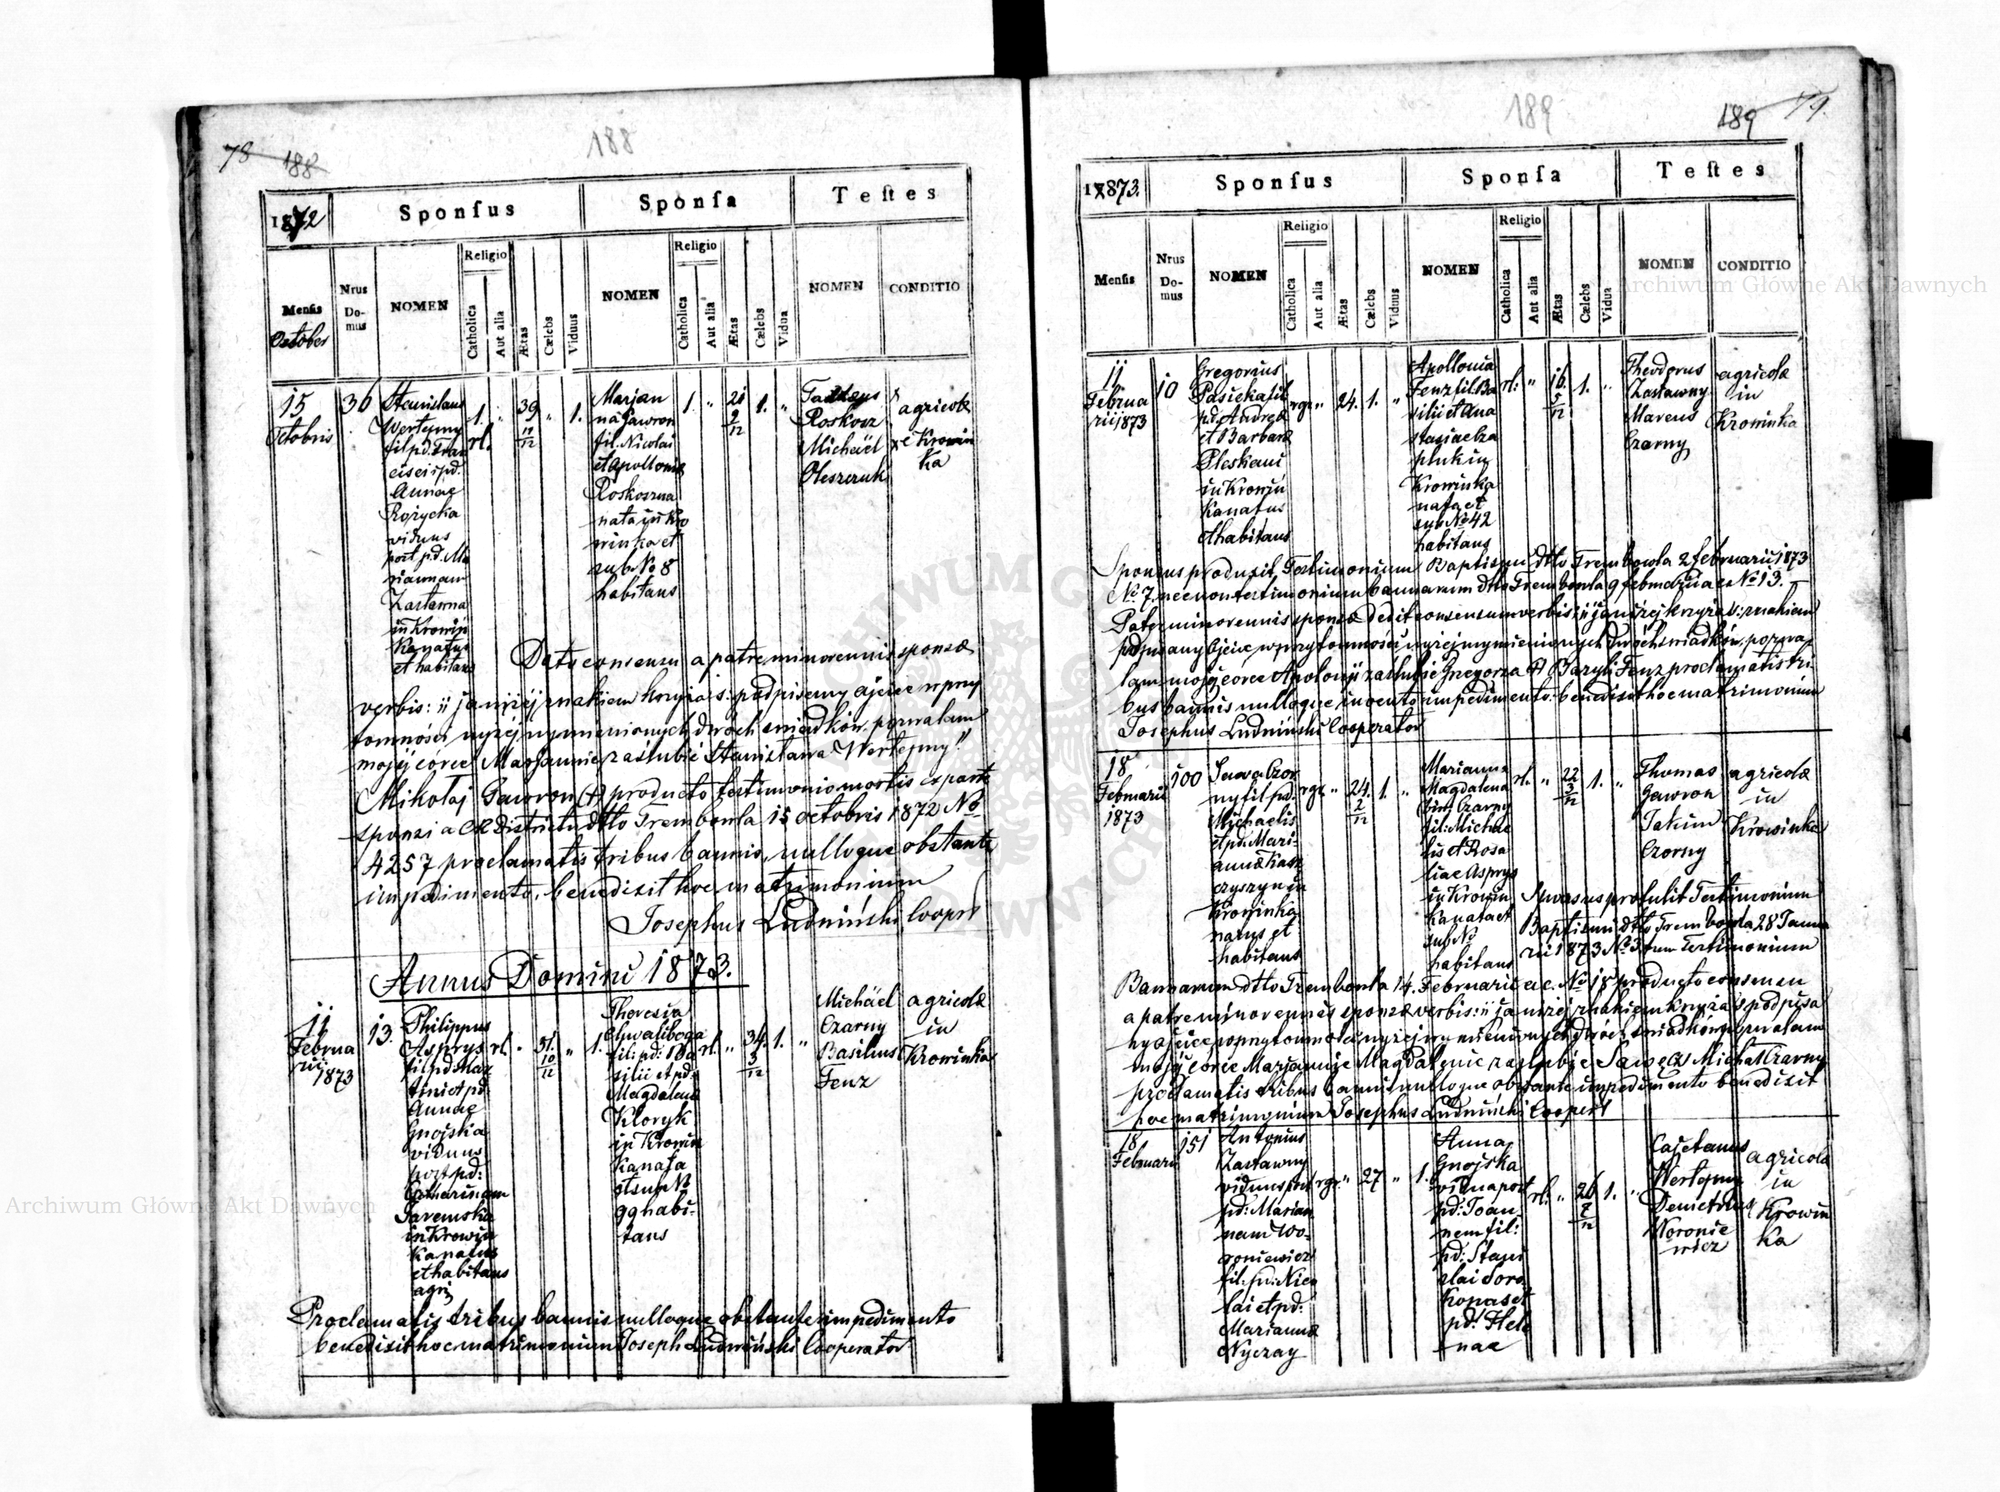 78 188
188
1872
Sponsus
Sponsa
Testes
Mensis
October
Nrus Domus
NOMEN
Religio
Catholica
Aut alia
Ætas
Cælebs
Viduus
NOMEN
Religio
Catholica
Aut alia
Ætas
Cælebs
Vidua
NOMEN
CONDITIO
15
Octobris
36
Stanislaus
Wertejny
fil. pd. Fran
cisci et pd.
Annae
Rozycka
viduus
post p.d. Ma
riannam
Zastawna
in Krowin
ka natus
et habitans
1.
rl.
39
10/12
"
1.
Marjan
na Gawron
fil. Nicolai
et Apolloniæ
Roskoszna
nata in Kro
winka et
sub No 8
habitans
1.
"
20
2/12
1.
"
Roskosz
Michäel
Oleszczuk
agricolæ
Krowin
ka
Dato consensu a patre minorennis sponsæ
verbis: ji ja niżéj znakiem krzyża s: podpisany ojciec w przy
tomności wyżéj wymienionych dwóch świadków, pozwalam
mojéj córce Marjannie zaślubić Stanisława Wertejny."
Mikołaj Gawron (+) producto testimonio mortis ex parte
sponsi a CR Districtu dtto Trembowla 15 octobris 1872 No
4257 proclamatis tribus bannis, nulloque obstante
impedimento, benedixit hoc matrimonium
Josephus Ludmiński Cooprt
Annus Domini 1873.
11
Februa
rii
1873
13.
Philippus
Asprys
fil. pd. Mar
tini et pd
Annae
Gnojska
viduus
post pd:
Catharinam
Jaremska
in Krowin
ka natus
et habitans
agri
rl.
"
31.
10/12
"
1.
Theresia
Chwaliboga
fil: pd: Ba
silii et pd:
Magdalena
Kloryk
in Krowin
ka nata
et sub N
99 habi-
tans
rl.
"
34.
3/12
1.
"
Michäel
Czarny
Basilius
Fenz
agricolæ
in
Krowinka
Proclamatis tribus bannis nulloque obstante impedimento
benedixit hoc matrimonium Joseph Ludmiński Cooperator
189
189 79.
1873.
Sponsus
Sponsa
Testes
Mensis
Nrus Domus
NOMEN
Religio
Catholica
Aut alia
Ætas
Cælebs
Viduus
NOMEN
Religio
Catholica
Aut alia
Ætas
Cælebs
Vidua
NOMEN
CONDITIO
11
Februa
rii 1873
10
Gregorius
Pasieka fil
pd. Andreæ
et Barbaræ
Pleskacz
in Krowin
ka natus
et habitans
rgr
"
24.
1.
"
Apollonia
Fenz fil. Ba
silii et Ana
stasiae Cza
pluk in
Krowinka
nata et
sub No 42
habitans
rl:
"
16.
5/12
1.
"
Theodorus
Zastawny
Marcus
Czarny
agricolæ
in
Krowinka
Sponsus produxit Testimonium Baptismi dtto Trembowla 2 februarii 1873
No 7 nec non testimonium bannorum dtto Trembowla 9 februarii a.c. No 13.
Pater minorennis sponsæ dedit consensum verbis: ji ja niżéj krzyża s: znakiem
podpisany Ojciec w przytomności wyżéj wymienionych dwóch świadków, pozwa
lam mojéj córce Apolonji zaślubić Gregorza (+) Bazyli Fenz proclamatis tri
bus bannis nulloque invento impedimento, benedixit hoc matrimonium
Josephus Ludmiński Cooperator
18
Februarii
1873
100
Sawa Czar
ny fil pd.
Michaelis
et pd. Mari
annæ Kasz
czyszyn in
Krowinka
natus et
habitans
rgr
"
24.
2/12
1.
"
Marianna
Magdalena
bin. Czarny
fil: Michae
lis et Rosa
liae Asprys
in Krowin
ka nata et
sub N
habitans
rl.
"
22
3/12
1.
"
Thomas
Gawron
Jakim
Czorny
agricolæ
in
Krowinka
Sponsus protulit Testimonium
Baptismi dtto Trembowla 28 Janua
rii 1873 No 3 tum Testimonium
Bannorum dtto Trembowla 14. Februarii a.c. No 18 producto consensu
a patre minorennis sponsæ verbis: ji ja niżéj znakiem krzyża s podpisa
ny ojciec w przytomności wyżéj wymienionych dwóch świadków pozwalam
mojéj córce Marjannie Magdalenie zaślubić Sawę (+) Michał Czarny
proclamatis tribus bannis nulloque obstante impedimento benedixit
hoc matrimonium Josephus Ludmiński Coopert
18
Februarii
151
Antonius
Zastawny
viduus post
pd: Marian
nam Wo-
roniewicz
fil: pd: Nico
lai et pd:
Mariannæ
Nyczay
rgr
"
27
"
1.
Anna
Gnojska
vidua post
pd: Joan
nem fil:
pd: Stani
slai Soro
kopas et
pd: Hele
nae
rl:
"
26
7/12
1.
"
Cajetanus
Wertejny
Demetrius
Woronie
wicz
agricolæ
in
Krowin
ka
Archiwum Główne Akt Dawnych
Archiwum Główne Akt Dawnych
ARCHIWUM GŁÓWNE AKT DAWNYCH